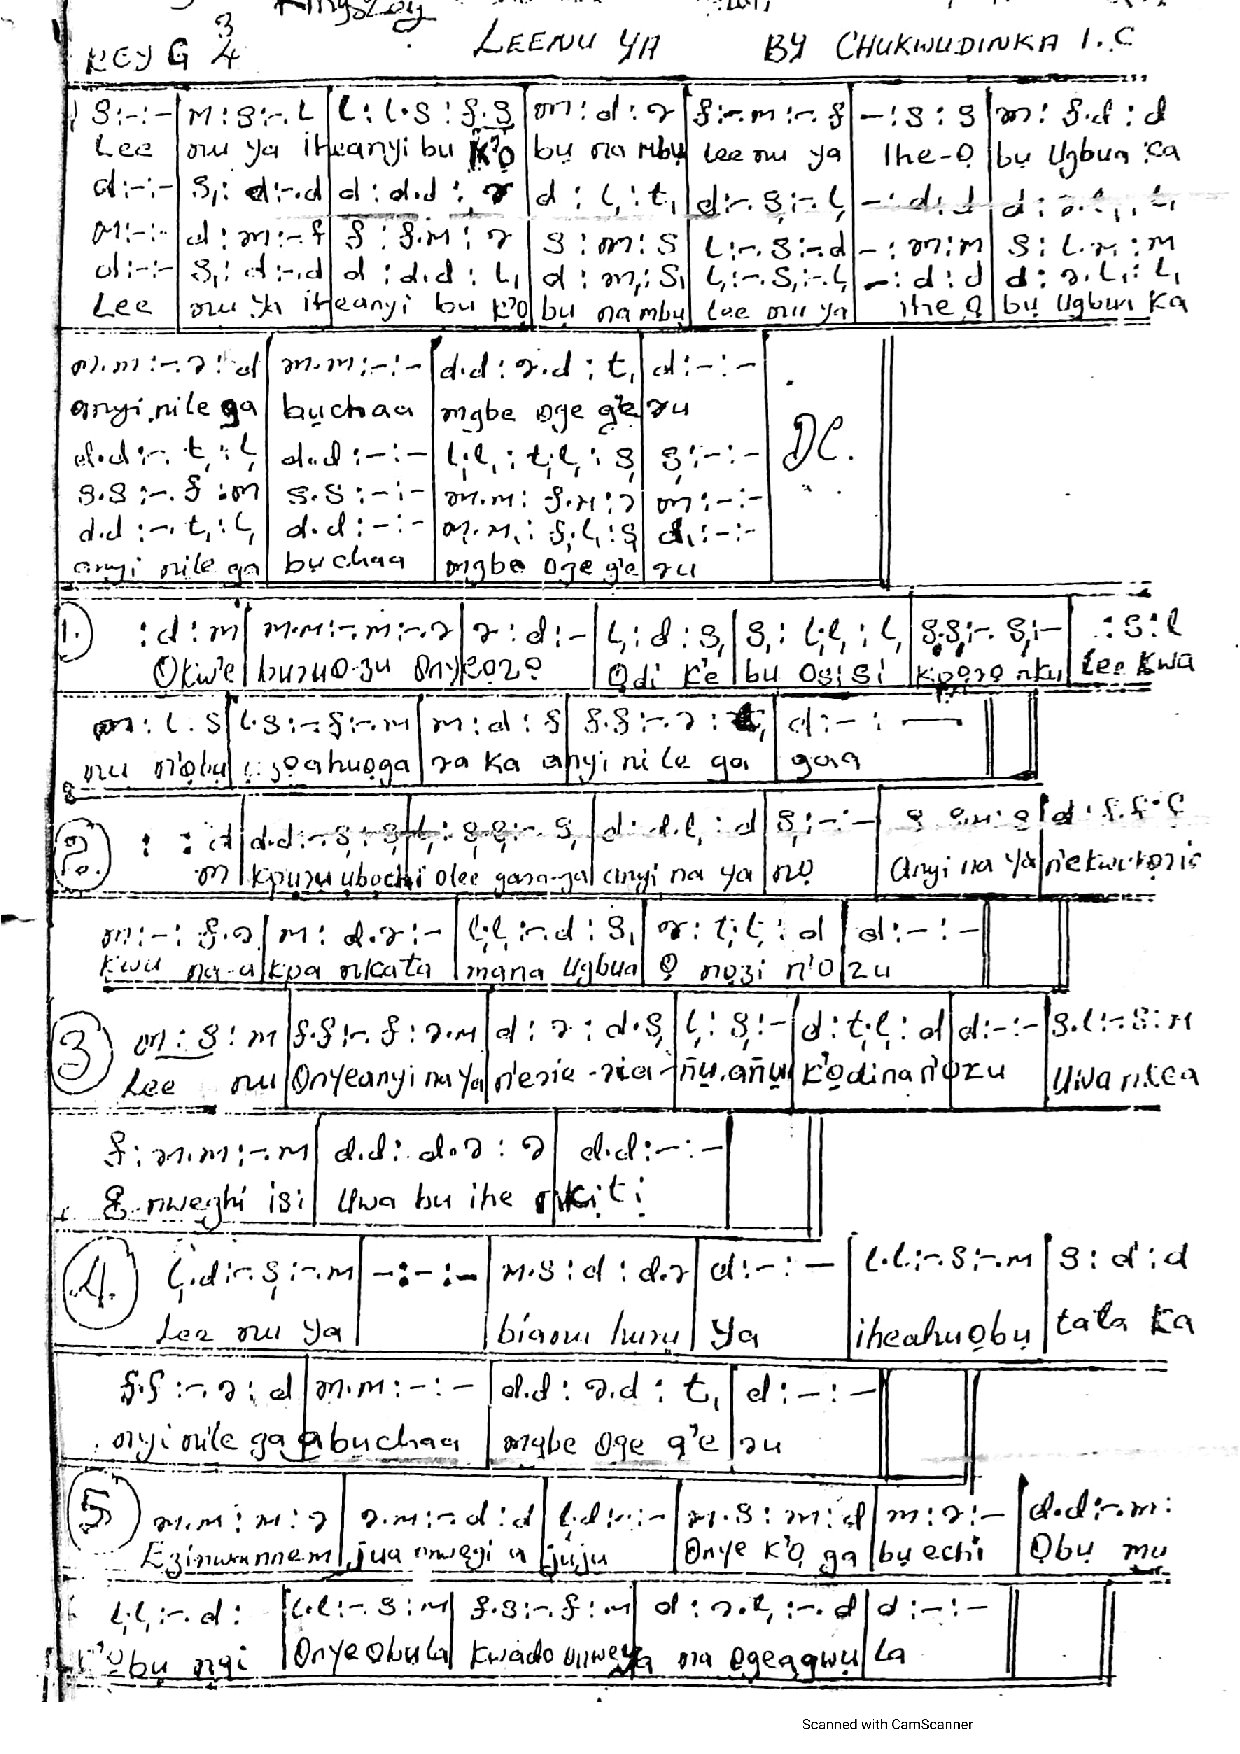 KEY G 3/4 LEENU YA BY CHUKWUDINKA I. C
s:-:- | m:s:-.l | l:l.s:f.s | m:d:r | f:-.m:-.f | -:s:s | m:f.d:d
Lee nu ya iheanyi bu K'ọ bụ na mbụ Lee nu ya Ihe-ọ bụ Ugbua ka
d:-:- | s,:d:-.d | d:d.d:r | d:l,:t, | d:-.s,:-.l, | -:d:d
m:-:- | d:m:-f | f:f.m:r | s:m:s | l:-.s:-d | -:m:m | s:l.m:m
d:-:- | s,:d:-.d | d:d.d:l, | d:m,:s, | l,:-.s,:-.l, | -:d:d | d:r.l,:l,
Lee nu ya iheanyi bu k'ọ bụ na mbu Lee nu ya ihe ọ bụ Ugbua ka
m.m:-.r:d | m.m:-:- | d.d:r.d:t, | d:-:-
anyi nile ga bụchaa mgbe oge g'e ru
DC.
d.d:-.t,:l, | d.d:-:- | l,.l,:t,.l,:s, | s,:-:-
s.s:-.f:m | s.s:-:- | m.m:f.m:r | m:-:-
d.d:-.t,:l, | d.d:-:- | m,.m,:f,.l,:s, | d,:-:-
anyi nile ga bụchaa mgbe oge g'e ru
1. :d:m | m.m:-.m:-.r | r:d:- | l,:d:s, | s,:l,.l,:l, | s,.s,:-.s,:- | :s:l
Okw'e buruozu Onyeozo Odi k'e bu Osisi kpọrọ nku Lee kwa
m:l.s | l.s:-.f:-.m | m:d:f | f.f:-.r:t, | d:-:-
nu n'obu ra ka anyi nile ga gaa
2. ::d | d.d:-.s,:s, | l,:s,.s,:-.s, | d:l,.l,:d | s,:-:-
m kpuru ubochi olee anyi na ya nọ Anyi na ya
m:-:f.r | m:d.r:- | l,.l,:-.d:s, | r:t,.l,:d | d:-:-
kwu na-a kpa nkata mana Ugbua Ọ nọzi n'o zu
3 m:s:m | f.f:-.f:r.m | d:r:d.s, | l,:s,:- | d:t,.l,:d | d:-:- | s.l:-.s:m
Lee nu Onyeanyi na ya n'erie-ria-ñụ.añụ k'ọdina n'ozu Uwa nkea
f:m.m:-.m | d.d:d.r:r | d.d:-:-
nweghi isi Uwa bu ihe nkịtị
4. l,.d:-.s,:-.m | -:-:- | m.s:d:d.r | d:-:- | l.l:-.s:-.m | s:d:d
Lee nu ya bianu huru ya iheahuọbụ tata ka
f.f:-.r:d | m.m:-:- | d.d:r.d:t, | d:-:-
nyi nile ga abuchaa mgbe oge g'e ru
5 m.m:m:r | r.m:-.d:d | l,.d:-:- | m.s:m:d | m:r:- | d.d:-.m:
Ezinwannem jua nwegi a jụjụ Onye k'ọ ga bụ echi Ọbụ mu
l,.l,:-.d: | l.l:-.s:m | f.s:-.f:m | d:r.l,:-.d | d:-:-
k'ọbụ ngi Onyeobula kwado na ogeagwụ la
Scanned with CamScanner